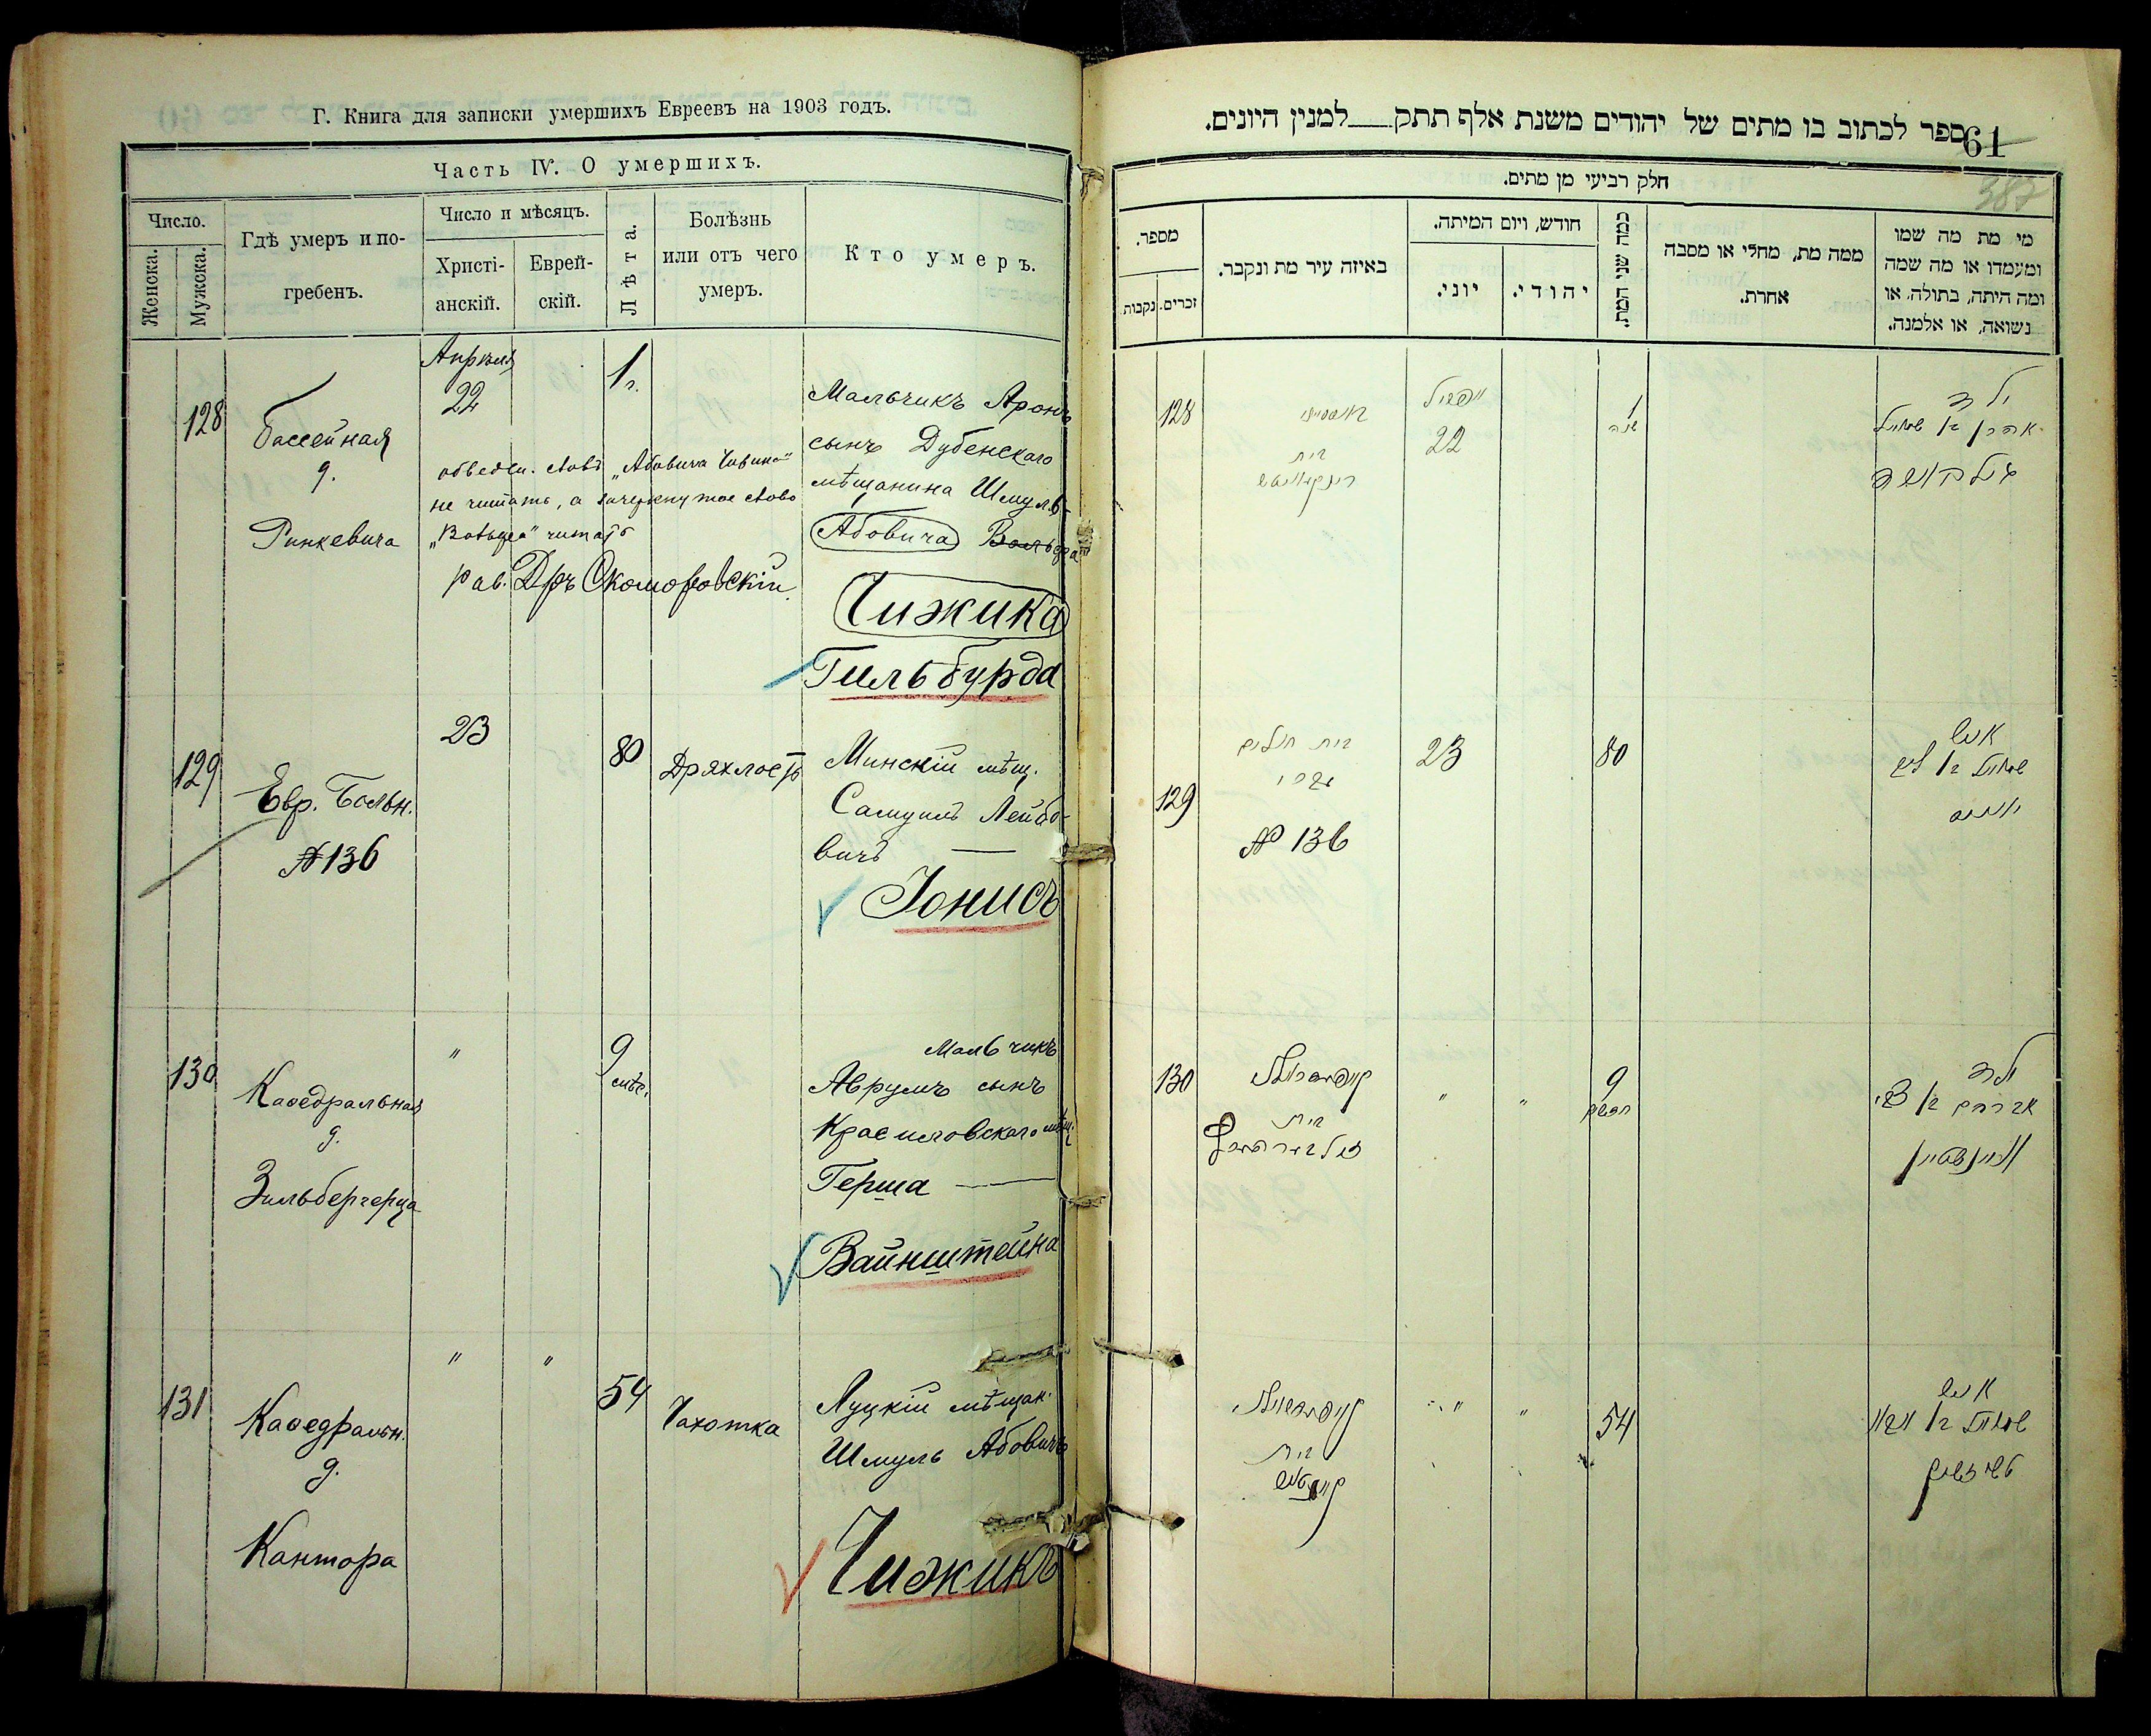 Г. Книга для записки умершихъ Евреевъ на 1903 годъ.
Часть IV. О умершихъ.
Число.
Женска.
Мужска.
Гдѣ умеръ и по-
гребенъ.
Число и мѣсяцъ.
Христі-
анскій.
Еврей-
скій.
Лѣта.
Болѣзнь
или отъ чего
умеръ.
Кто умеръ.
128
Бассейная
д.
Ринкевича
Апрѣля
22
1 г.
Мальчикъ Аронъ
сынъ Дубенскаго
мѣщанина Шмуль-
Абовича Вольфа
Чижика
Гильбурда
не читать, а зачеркнутое слово
„Вольфа" читать
рав. Дръ Скоморовскій
129
Евр. Больн.
№ 136
23
80
Дряхлость
Минскій мѣщ.
Самуилъ Лейбо-
вичъ
Іонисъ
130
Каѳедральная
д.
Зильбергерца
"
9
мѣс.
Мальчикъ
Аврумъ сынъ
Красиловскаго мѣщ.
Герша
Вайнштейна
131
Каѳедральн.
д.
Кантора
" "
54
Чахотка
Луцкій мѣщан.
Шмуль Абовичъ
Чижикъ
ספר לכתוב בו מתים של יהודים משנת אלף תתק למנין היונים.
61
387
חלק רביעי מן מתים.
מספר.
זכרים.
נקבות
באיזה עיר מת ונקבר.
חודש, ויום המיתה.
יוני.
יהודי.
כמה שני המת.
ממה מת, מחלי או מסבה
אחרת.
מי מת מה שמו
ומעמדו או מה שמה
ומה היתה, בתולה, או
נשואה, או אלמנה.
128
בית
אפריל
22
1
שנה
ילד
אהרן בן שמואל
129
בית חולים
№ 136
23
80
איש
שמואל בן ליב
130
בית
" "
9
חדשים
ילד
אברהם בן צבי
וויינשטיין
131
בית
" "
54
איש
שמואל בן אבא